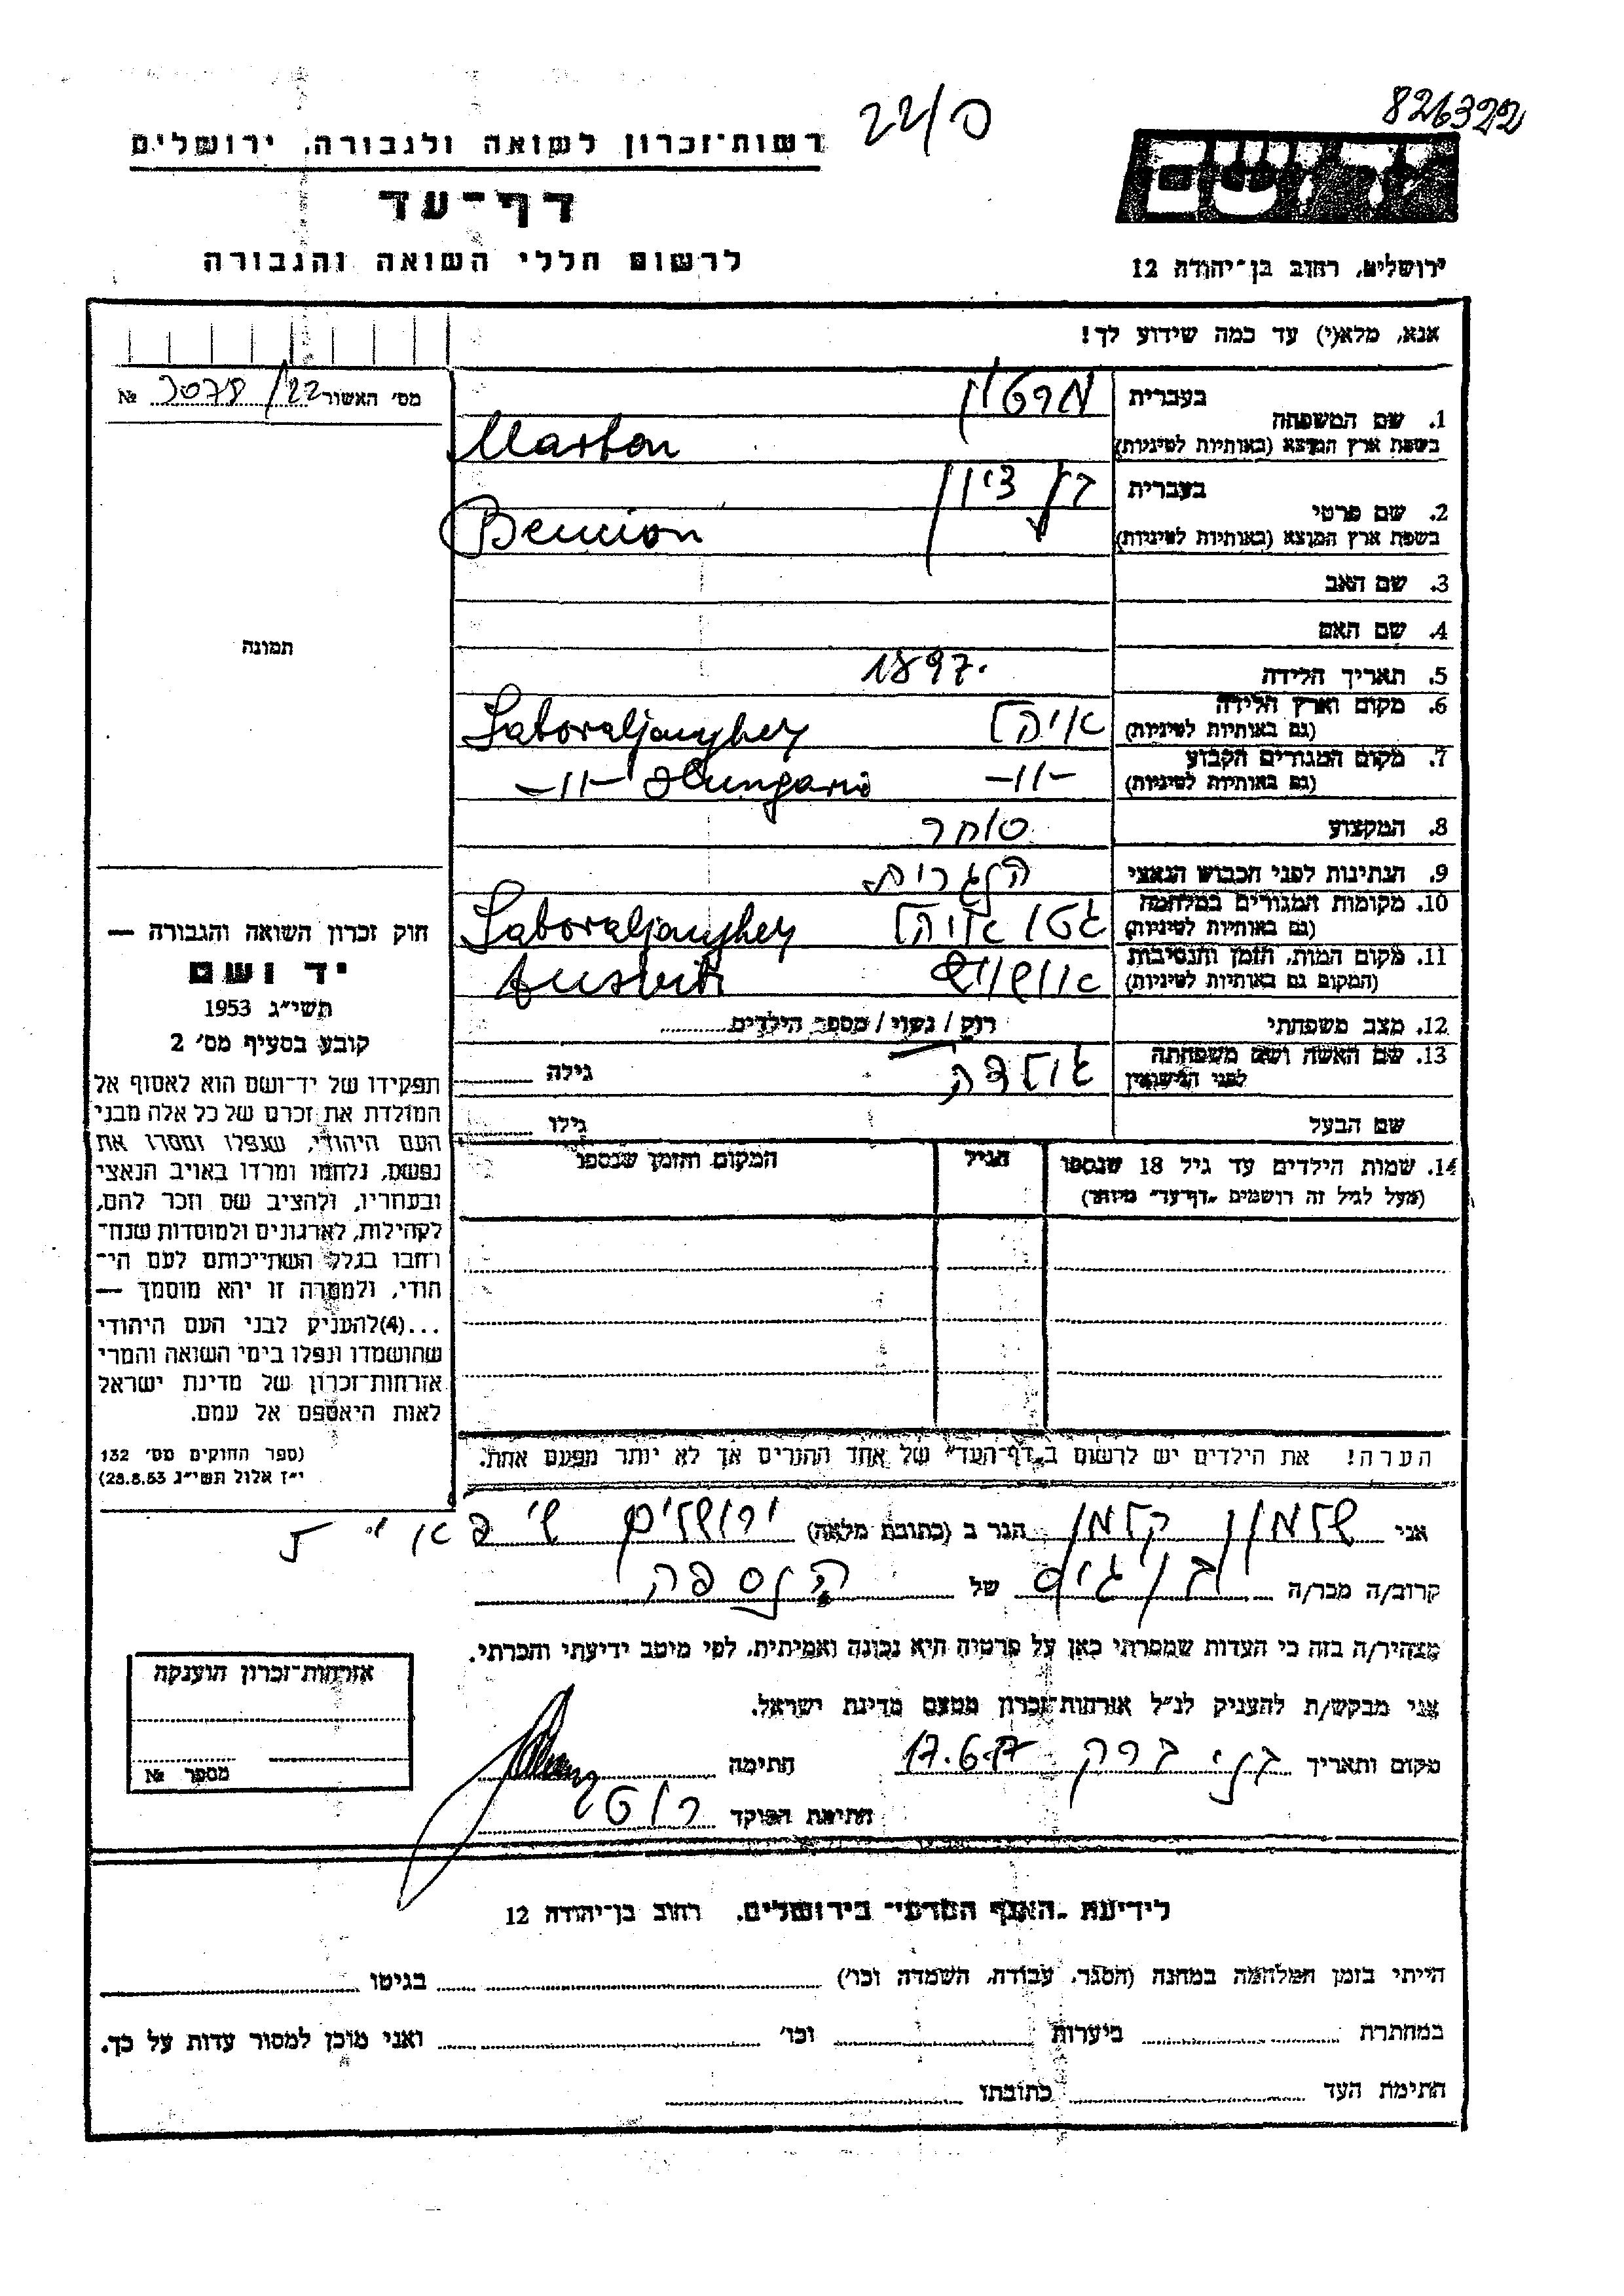 826322
22/ס
יד ושם
רשות־זכרון לשואה ולגבורה, ירושלים
דף־עד
לרשום חללי השואה והגבורה
ירושלים, רחוב בן־יהודה 12
אנא, מלא(י) עד כמה שידוע לך!
מס׳ האשור 22/ №
1. שם המשפחה
בעברית מרטון
בשפת ארץ המוצא (באותיות לטיניות) Marton
2. שם פרטי
בעברית בן ציון
בשפת ארץ המוצא (באותיות לטיניות) Bencion
3. שם האב
4. שם האם
תמונה
5. תאריך הלידה 1897.
6. מקום וארץ הלידה
(גם באותיות לטיניות) איהל Satoraljaughey
7. מקום המגורים הקבוע
(גם באותיות לטיניות) -11- -11- Hungaria
8. המקצוע סוחר
9. הנתינות לפני הכבוש הנאצי הנגרית
10. מקומות המגורים במלחמה
(גם באותיות לטיניות) גטו איהל Satoraljaughey
11. מקום המות, הזמן והנסיבות
(המקום גם באותיות לטיניות) אושויץ Ausvitz
12. מצב משפחתי רווק / נשוי / מספר הילדים
13. שם האשה ושם משפחתה
לפני הנישואין גולדה גילה
שם הבעל גילו
14. שמות הילדים עד גיל 18 שנספו
(מעל לגיל זה רושמים „דף־עד״ מיוחד)
הגיל
המקום והזמן שנספו
הערה! את הילדים יש לרשום ב„דף־העד״ של אחד ההורים אך לא יותר מפעם אחת.
חוק זכרון השואה והגבורה —
יד ושם
תשי״ג 1953
קובע בסעיף מס׳ 2
תפקידו של יד־ושם הוא לאסוף אל
המולדת את זכרם של כל אלה מבני
העם היהודי, שנפלו ומסרו את
נפשם, נלחמו ומרדו באויב הנאצי
ובעוזריו, ולהציב שם וזכר להם,
לקהילות, לארגונים ולמוסדות שנח־
רבו בגלל השתייכותם לעם הי־
הודי, ולמטרה זו יהא מוסמך —
...(4)להעניק לבני העם היהודי
שהושמדו ונפלו בימי השואה והמרי
אזרחות־זכרון של מדינת ישראל
לאות היאספם אל עמם.
(ספר החוקים מס׳ 132
י״ז אלול תשי״ג 28.8.53)
אני שלמון קלמן הגר ב (כתובת מלאה) ירושלים
קרוב/ה מכר/ה בן גיס של הנספה
מצהיר/ה בזה כי העדות שמסרתי כאן על פרטיה היא נכונה ואמיתית, לפי מיטב ידיעתי והכרתי.
אני מבקש/ת להעניק לנ״ל אזרחות־זכרון מטעם מדינת ישראל.
מקום ותאריך בני ברק 17.6.57 חתימה
חתימת הפוקד רוט
אזרחות־זכרון הוענקה
מספר №
לידיעת „האגף המדעי״ בירושלים, רחוב בן־יהודה 12
הייתי בזמן המלחמה במחנה (הסגר, עבודה, השמדה וכו׳) בגיטו
במחתרת ביערות וכו׳ ואני מוכן למסור עדות על כך.
חתימת העד כתובתו